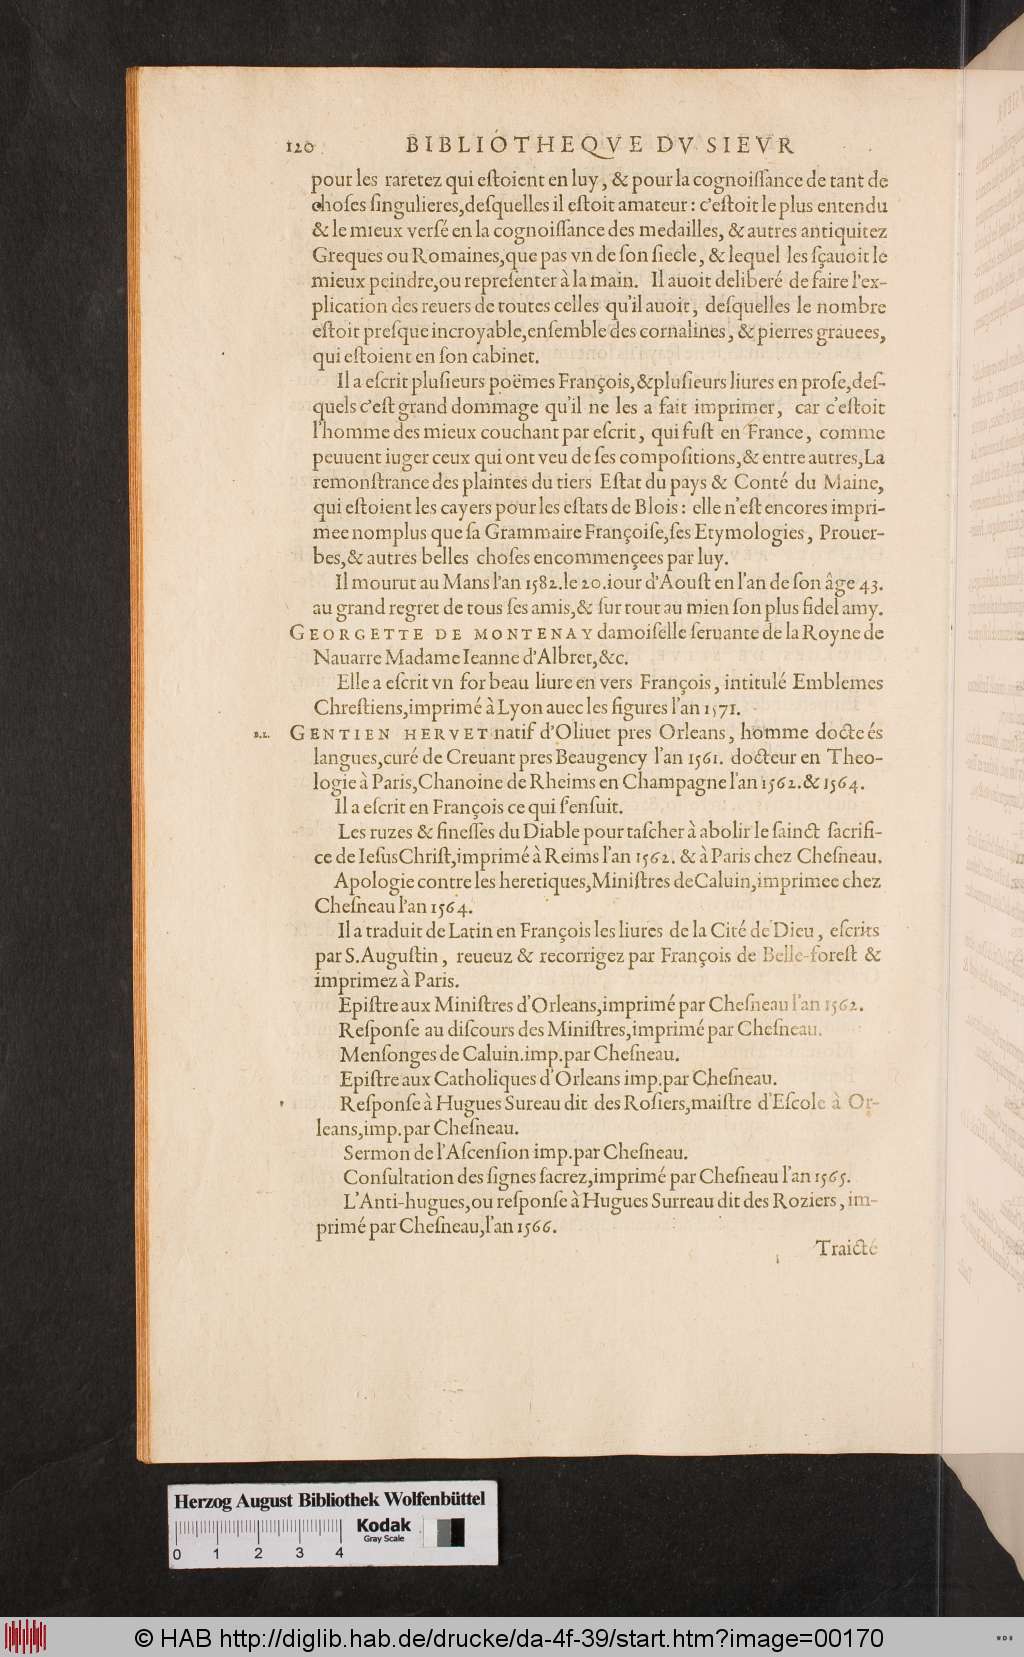 120 BIBLIOTHEQVE DV SIEVR
pour les raretez qui eſtoient en luy, & pour la cognoiſſance de tant de
choſes ſingulieres,deſquelles il eſtoit amateur: c'eſtoit le plus entendu
& le mieux verſé en la cognoiſſance des medailles, & autres antiquitez
Greques ou Romaines,que pas vn de ſon ſiecle, & lequel les ſçauoit le
mieux peindre,ou repreſenter à la main. Il auoit deliberé de faire l'ex-
plication des reuers de toutes celles qu'il auoit, deſquelles le nombre
eſtoit preſque incroyable,enſemble des cornalines, & pierres grauees,
qui eſtoient en ſon cabinet.
Il a eſcrit pluſieurs poëmes François,&pluſieurs liures en proſe,deſ-
quels c'eſt grand dommage qu'il ne les a fait imprimer, car c'eſtoit
l'homme des mieux couchant par eſcrit, qui fuſt en France, comme
peuuent iuger ceux qui ont veu de ſes compoſitions,& entre autres,La
remonſtrance des plaintes du tiers Eſtat du pays & Conté du Maine,
qui eſtoient les cayers pour les eſtats de Blois: elle n'eſt encores impri-
mee nomplus que ſa Grammaire Françoiſe,ſes Etymologies, Prouer-
bes,& autres belles choſes encommençees par luy.
Il mourut au Mans l'an 1582.le 20.iour d'Aouſt en l'an de ſon âge 43.
au grand regret de tous ſes amis,& ſur tout au mien ſon plus fidel amy.
GEORGETTE DE MONTENAY damoiſelle ſeruante de la Royne de
Nauarre Madame Ieanne d'Albret,&c.
Elle a eſcrit vn for beau liure en vers François, intitulé Emblemes
Chreſtiens,imprimé à Lyon auec les figures l'an 1571.
B.L. GENTIEN HERVET natif d'Oliuet pres Orleans, homme docte és
langues,curé de Creuant pres Beaugency l'an 1561. docteur en Theo-
logie à Paris,Chanoine de Rheims en Champagne l'an 1562.& 1564.
Il a eſcrit en François ce qui ſ'enſuit.
Les ruzes & fineſſes du Diable pour taſcher à abolir le ſainct ſacrifi-
ce de IeſusChriſt,imprimé à Reims l'an 1562. & à Paris chez Cheſneau.
Apologie contre les heretiques,Miniſtres de Caluin,imprimee chez
Cheſneau l'an 1564.
Il a traduit de Latin en François les liures de la Cité de Dieu, eſcrits
par S.Auguſtin, reueuz & recorrigez par François de Belle-foreſt &
imprimez à Paris.
Epiſtre aux Miniſtres d'Orleans,imprimé par Cheſneau l'an 1562.
Reſponſe au diſcours des Miniſtres,imprimé par Cheſneau.
Menſonges de Caluin.imp.par Cheſneau.
Epiſtre aux Catholiques d'Orleans imp.par Cheſneau.
Reſponſe à Hugues Sureau dit des Roſiers,maiſtre d'Eſcole à Or-
leans,imp.par Cheſneau.
Sermon de l'Aſcenſion imp.par Cheſneau.
Conſultation des ſignes ſacrez,imprimé par Cheſneau l'an 1565.
L'Anti-hugues,ou reſponſe à Hugues Surreau dit des Roziers, im-
primé par Cheſneau,l'an 1566.
Traicté
Herzog August Bibliothek Wolfenbüttel
Kodak
Gray Scale
0 1 2 3 4
© HAB http://diglib.hab.de/drucke/da-4f-39/start.htm?image=00170